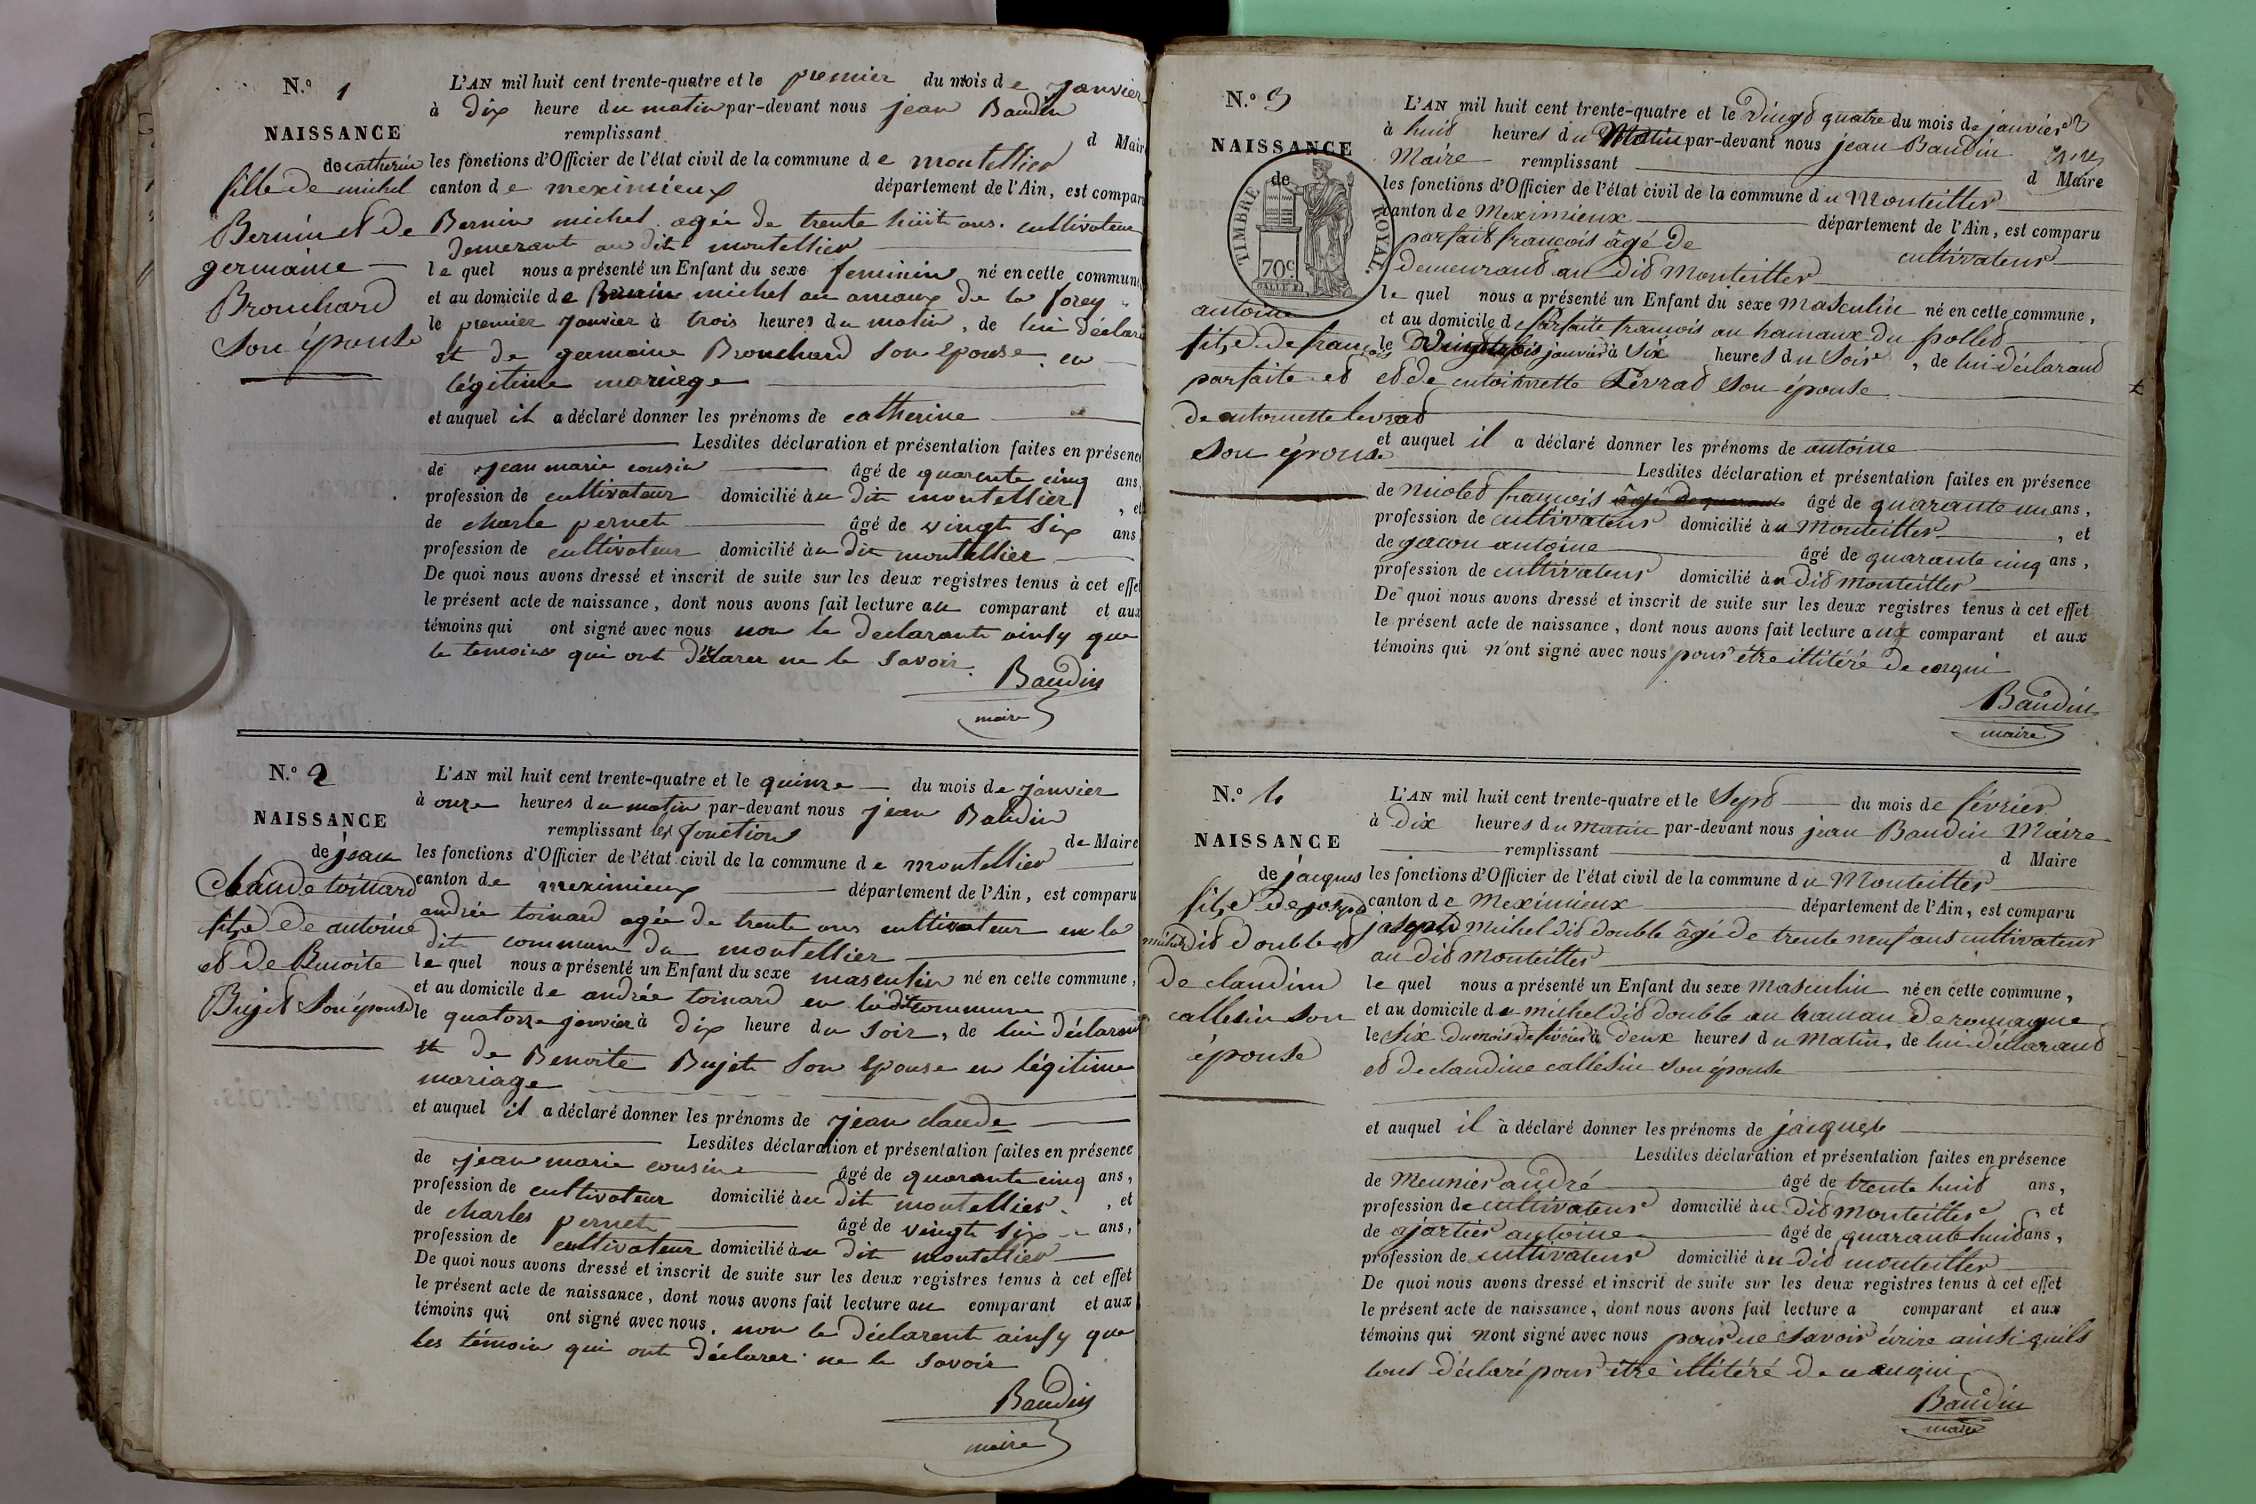 N.o 1
NAISSANCE
de catherine
fille de michel
Bernin et de
germaine
Brouchard
son épouse
L'AN mil huit cent trente-quatre et le premier du mois de janvier
à dix heure du matin par-devant nous jean Baudin
remplissant d Maire
les fonctions d'Officier de l'état civil de la commune de montellier
canton de meximieux département de l'Ain, est comparu
Bernin michel agée de trente huit ans. cultivateur
demeurant au dit montellier
le quel nous a présenté un Enfant du sexe feminin né en cette commune
et au domicile de Bernin michel au amaux de la forey
le premier janvier à trois heures du matin, de lui déclara
et de germaine Brouchard son épouse en
légitime mariage
et auquel il a déclaré donner les prénoms de catherine
Lesdites déclaration et présentation faites en présence
de jean marie cousin âgé de quarente cinq ans,
profession de cultivateur domicilié au dit montellier, et
de charle pernet âgé de vingt six ans
profession de cultivateur domicilié au dit montellier
De quoi nous avons dressé et inscrit de suite sur les deux registres tenus à cet effet
le présent acte de naissance, dont nous avons fait lecture au comparant et aux
témoins qui ont signé avec nous non le declarant ainsy que
le temoins qui ont déclarer ne le savoir.
Baudin
maire
N.o 2
NAISSANCE
de jean
Claude toinard
fils de antoine
et de Benoite
Bujet son épouse
L'AN mil huit cent trente-quatre et le quinze du mois de janvier
à onze heures du matin par-devant nous jean Baudin
remplissant les fonction de Maire
les fonctions d'Officier de l'état civil de la commune de montellier
canton de meximieux département de l'Ain, est comparu
andrée toinard agée de trente ans cultivateur en la
dite commune du montellier
le quel nous a présenté un Enfant du sexe masculin né en cette commune,
et au domicile de andrée toinard en ladite commune
le quatorze janvier à dix heure du soir, de lui déclarant
et de Benoite Bujet son épouse en légitime
mariage
et auquel il a déclaré donner les prénoms de jean claude
Lesdites déclaration et présentation faites en présence
de jean marie cousin âgé de quarante cinq ans,
profession de cultivateur domicilié au dit montellier, et
de charles pernet âgé de vingt six ans,
profession de cultivateur domicilié au dit montellier
De quoi nous avons dressé et inscrit de suite sur les deux registres tenus à cet effet
le présent acte de naissance, dont nous avons fait lecture au comparant et aux
témoins qui ont signé avec nous, non le déclarent ainsy que
les témoin qui ont déclarer ne le savoir
Baudin
maire
N.o 3
NAISSANCE
de
TIMBRE ROYAL.
70c.
antoine
fils de francois
parfaite et
de antoinette levrat
son épouse
L'AN mil huit cent trente-quatre et le Vingt quatre du mois de janvier
à huit heures du Matin par-devant nous jean Baudin
Maire remplissant d Maire
les fonctions d'Officier de l'état civil de la commune du Monteiller
canton de Meximieux département de l'Ain, est comparu
parfait francois âgé de cultivateur
demeurant au dit Monteiller
le quel nous a présenté un Enfant du sexe Masculin né en cette commune,
et au domicile de Parfaite francois au hamaux du pollet
le janvier à six heures du Soir, de lui déclarant
et de entoinnette Levrat son épouse
et auquel il a déclaré donner les prénoms de antoine
Lesdites déclaration et présentation faites en présence
de nicolet francois âgé de quarante un ans,
profession de cultivateur domicilié au Monteiller, et
de gacon antoine âgé de quarante cinq ans,
profession de cultivateur domicilié au dit monteiller
De quoi nous avons dressé et inscrit de suite sur les deux registres tenus à cet effet
le présent acte de naissance, dont nous avons fait lecture aux comparant et aux
témoins qui n'ont signé avec nous pour être illitéré de
Baudin
maire
N.o 4
NAISSANCE
de jacques
fils de joseph
michel dit double et
de claudine
callesin son
épouse
L'AN mil huit cent trente-quatre et le Sept du mois de février
à Dix heures du Matin par-devant nous jean Baudin Maire
remplissant d Maire
les fonctions d'Officier de l'état civil de la commune du Monteiller
canton de Meximieux département de l'Ain, est comparu
joseph michel dit double âgé de trente neuf ans cultivateur
au dit Monteiller
le quel nous a présenté un Enfant du sexe Masculin né en cette commune,
et au domicile de michel dit double au hamau de romagne
le six du mois de février à deux heures du Matin, de lui déclarant
et de claudine callesin son épouse
et auquel il à déclaré donner les prénoms de jacques
Lesdites déclaration et présentation faites en présence
de Meunier andré âgé de trente huit ans,
profession de cultivateur domicilié au dit monteiller, et
de ajartier antoine âgé de quarante huit ans,
profession de cultivateur domicilié au dit monteiller
De quoi nous avons dressé et inscrit de suite sur les deux registres tenus à cet effet
le présent acte de naissance, dont nous avons fait lecture a comparant et aux
témoins qui nont signé avec nous pour ne savoir écrire ainsi quils
lont déclaré pour être illitéré de ce
Baudin
maire